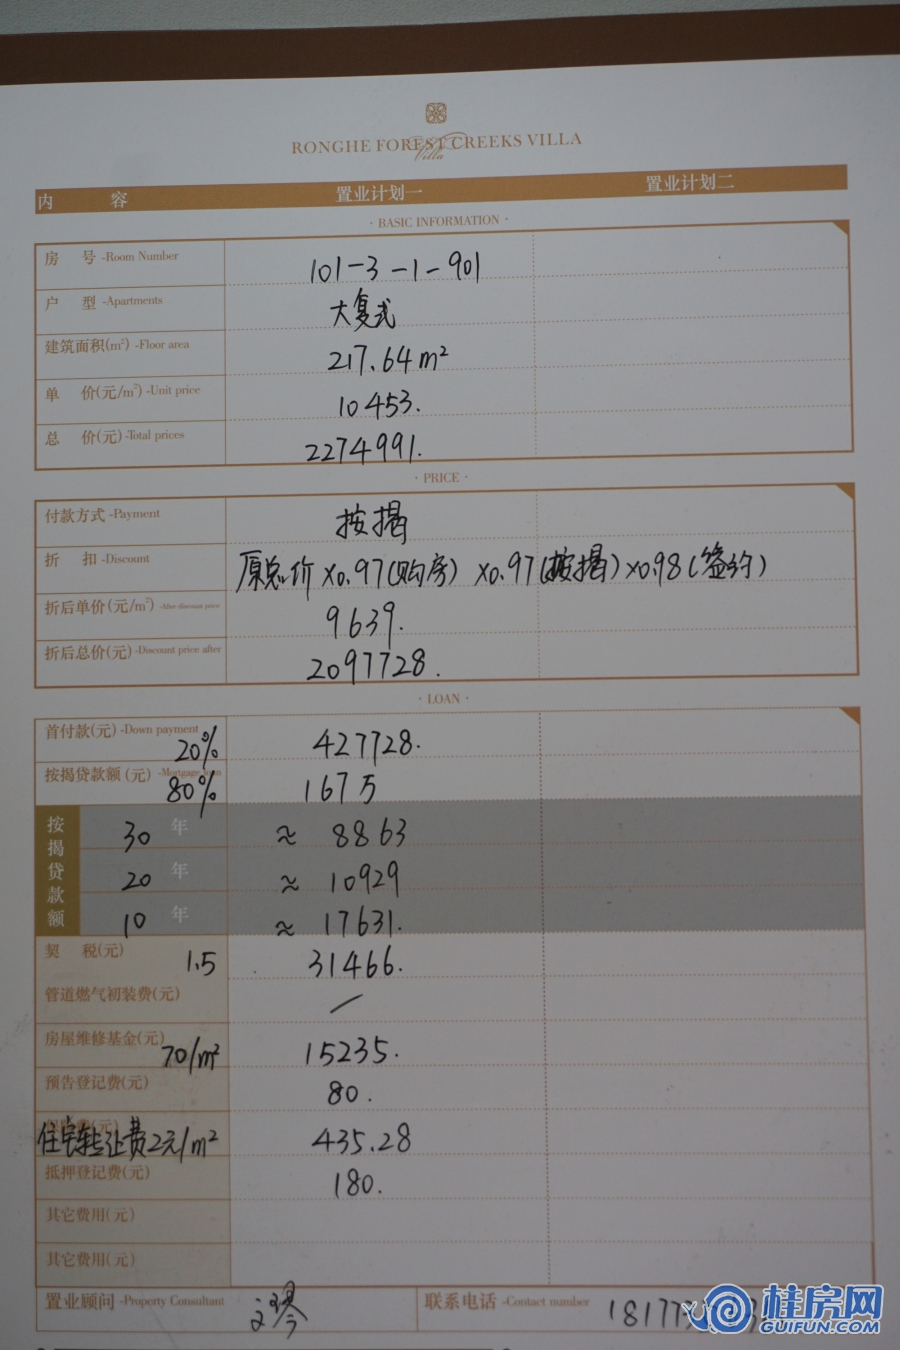 RONGHE FOREST CREEKS VILLA
Villa
内 容 置业计划一 置业计划二
· BASIC INFORMATION ·
房 号 -Room Number 101-3-1-901
户 型 -Apartments 大复式
建筑面积(m²) -Floor area 217.64m²
单 价(元/m²) -Unit price 10453.
总 价(元) -Total prices 2274991.
· PRICE ·
付款方式 -Payment 按揭
折 扣 -Discount 原总价×0.97(购房)×0.97(按揭)×0.98(签约)
折后单价(元/m²) -After discount price 9639.
折后总价(元) -Discount price after 2097728.
· LOAN ·
首付款(元) -Down payment 20% 427728.
按揭贷款额(元) -Mortgage loan 80% 167万
按揭贷款额
30 年 ≈ 8863
20 年 ≈ 10929
10 年 ≈ 17631.
契 税(元) 1.5 31466.
管道燃气初装费(元) /
房屋维修基金(元) 70/m² 15235.
预告登记费(元) 80.
住宅转让费2元/m² 435.28
抵押登记费(元) 180.
其它费用(元)
其它费用(元)
置业顾问 -Property Consultant 联系电话 -Contact number
桂房网
GUIFUN.COM